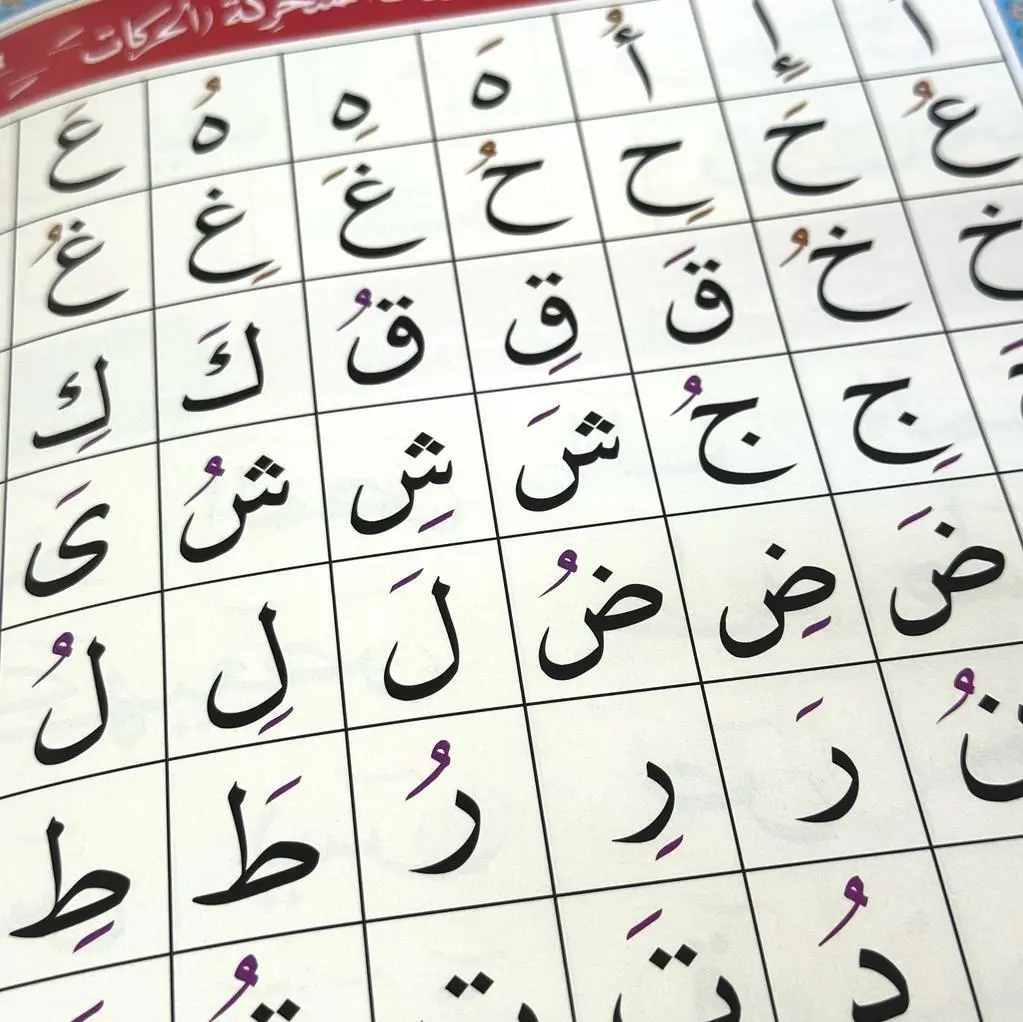 المتحركة (الحركات
ا إِ أُ هَ هِ هُ عَ
عُ حَ حِ حُ غَ غِ غُ
خ خُ قَ قِ قُ كَ كِ
جِ جُ شَ شِ شُ ىَ
ضَ ضِ ضُ لَ لِ لُ
نُ رَ رِ رُ طَ طِ
دُ تَ ت تُ